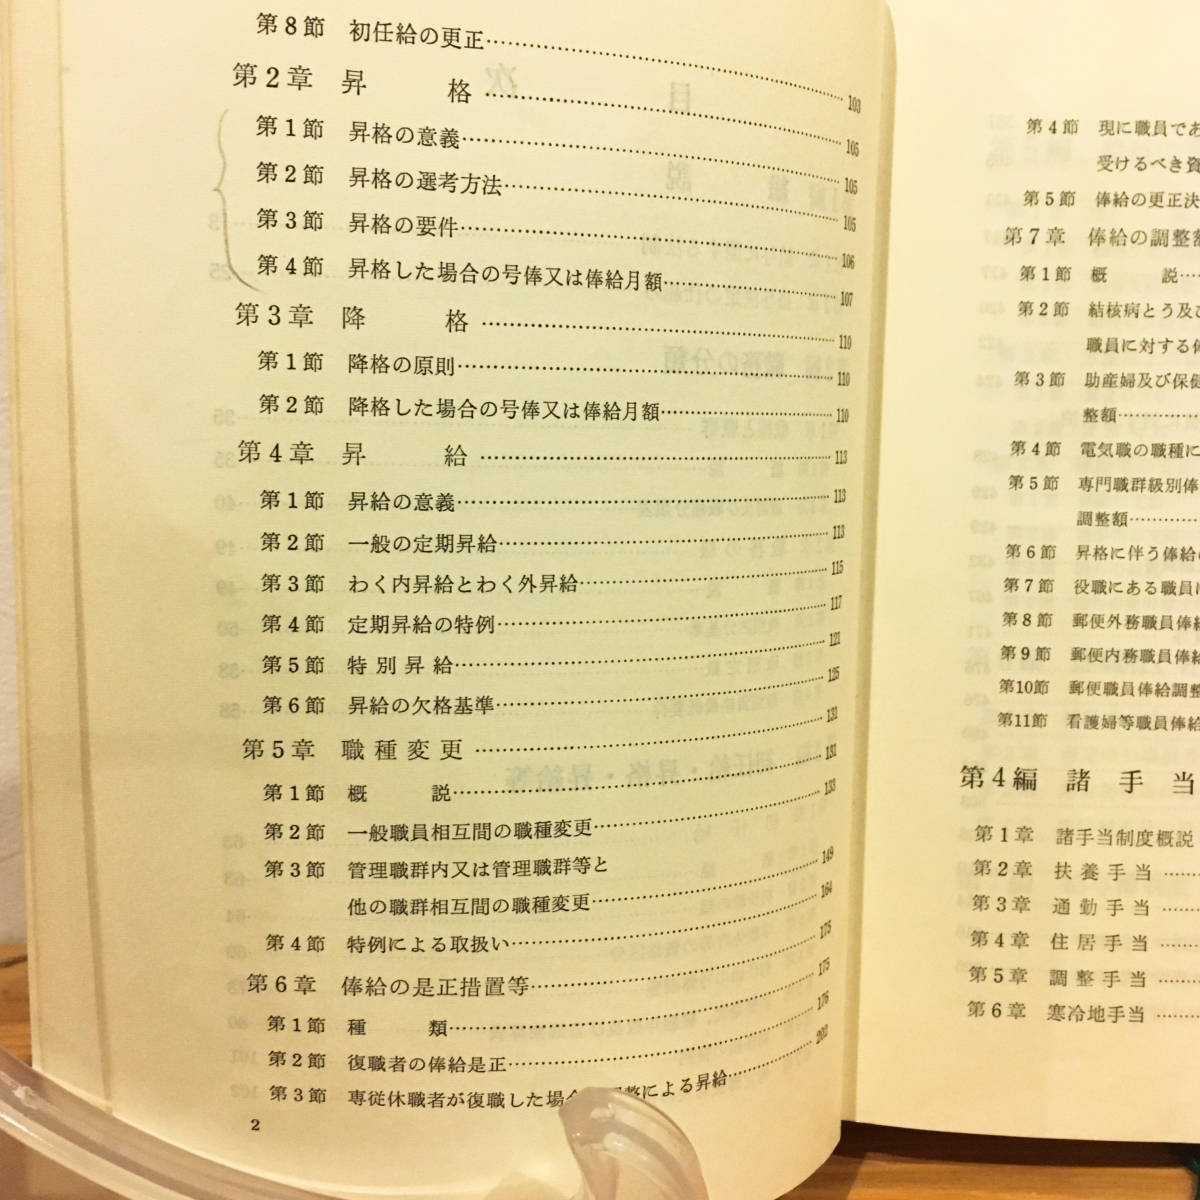 第8節 初任給の更正……………103
第2章 昇格……………105
第1節 昇格の意義……………105
第2節 昇格の選考方法……………105
第3節 昇格の要件……………106
第4節 昇格した場合の号俸又は俸給月額……………107
第3章 降格……………110
第1節 降格の原則……………110
第2節 降格した場合の号俸又は俸給月額……………110
第4章 昇給……………113
第1節 昇給の意義……………113
第2節 一般の定期昇給……………113
第3節 わく内昇給とわく外昇給……………115
第4節 定期昇給の特例……………117
第5節 特別昇給……………121
第6節 昇給の欠格基準……………125
第5章 職種変更……………131
第1節 概説……………131
第2節 一般職員相互間の職種変更……………133
第3節 管理職群内又は管理職群等と
他の職群相互間の職種変更……………149
第4節 特例による取扱い……………164
第6章 俸給の是正措置等……………175
第1節 種類……………175
第2節 復職者の俸給是正……………176
第3節 専従休職者が復職した場合 調整による昇給……………202
2
第4節 現に職員であ
受けるべき資
第5節 俸給の更正決
第7章 俸給の調整額
第1節 概説……
第2節 結核病とう及び
職員に対する俸
第3節 助産婦及び保健
整額……………
第4節 電気職の職種に
第5節 専門職群級別俸
調整額…………
第6節 昇格に伴う俸給の
第7節 役職にある職員に
第8節 郵便外務職員俸給
第9節 郵便内務職員俸給
第10節 郵便職員俸給調整
第11節 看護婦等職員俸給
第4編 諸手当
第1章 諸手当制度概説
第2章 扶養手当……
第3章 通勤手当……
第4章 住居手当……
第5章 調整手当……
第6章 寒冷地手当……